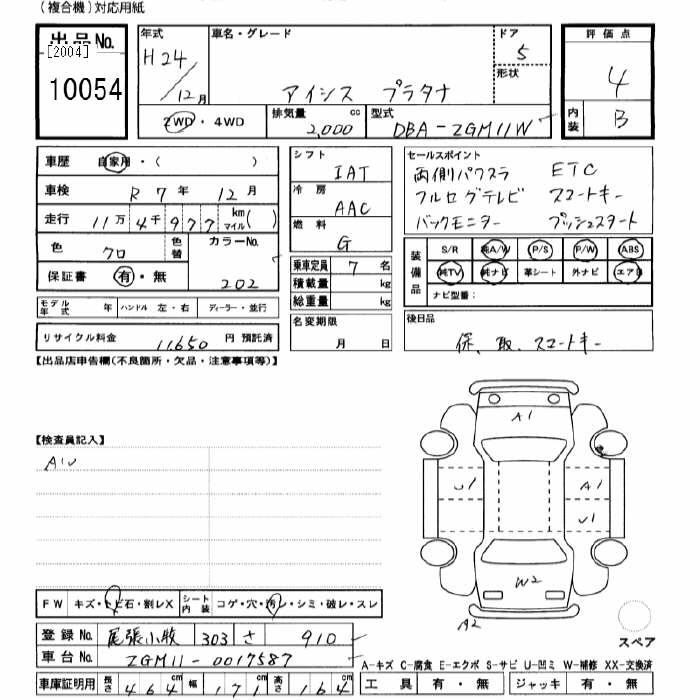 (複合機)対応用紙
出品No.
[2004]
10054
年式
H24/12月
車名・グレード
アイシス プラタナ
ドア
5
形状
評価点
4
内装
B
2WD・4WD
排気量
2,000
cc
型式
DBA-ZGM11W
車歴 自家用・( )
車検 R7年 12月
走行 11万4千977 km マイル( )
色 クロ 色替 カラーNo. 202
保証書 有・無
モデル年式 年 ハンドル 左・右 ディーラー・並行
リサイクル料金 11650 円 預託済
シフト
IAT
冷房
AAC
燃料
G
乗車定員 7 名
積載量 kg
総重量 kg
名変期限
月 日
セールスポイント
両側パワスラ ETC
フルセグテレビ スマートキー
バックモニター プッシュスタート
装備品
S/R 純A/W P/S P/W ABS
純TV 純ナビ 革シート 外ナビ エアB
ナビ型番:
後日品
保、取、スマートキー
【出品店申告欄(不良箇所・欠品・注意事項等)】
【検査員記入】
A1 U1 A1 U1 W2 A2
FW キズ・ヒビ石・割レX シート内装 コゲ・穴・汚レ・シミ・破レ・スレ
登録No. 尾張小牧 303 さ 910
車台No. ZGM11-0017587
車庫証明用 長さ 464 cm 幅 171 cm 高さ 164 cm
スペア
A-キズ C-腐食 E-エクボ S-サビ U-凹ミ W-補修 XX-交換済
工具 有・無 ジャッキ 有・無